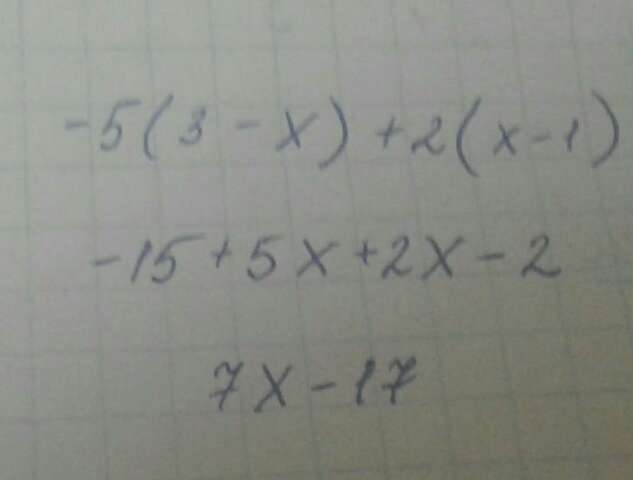 -5(3-x)+2(x-1)
-15+5x+2x-2
7x-17